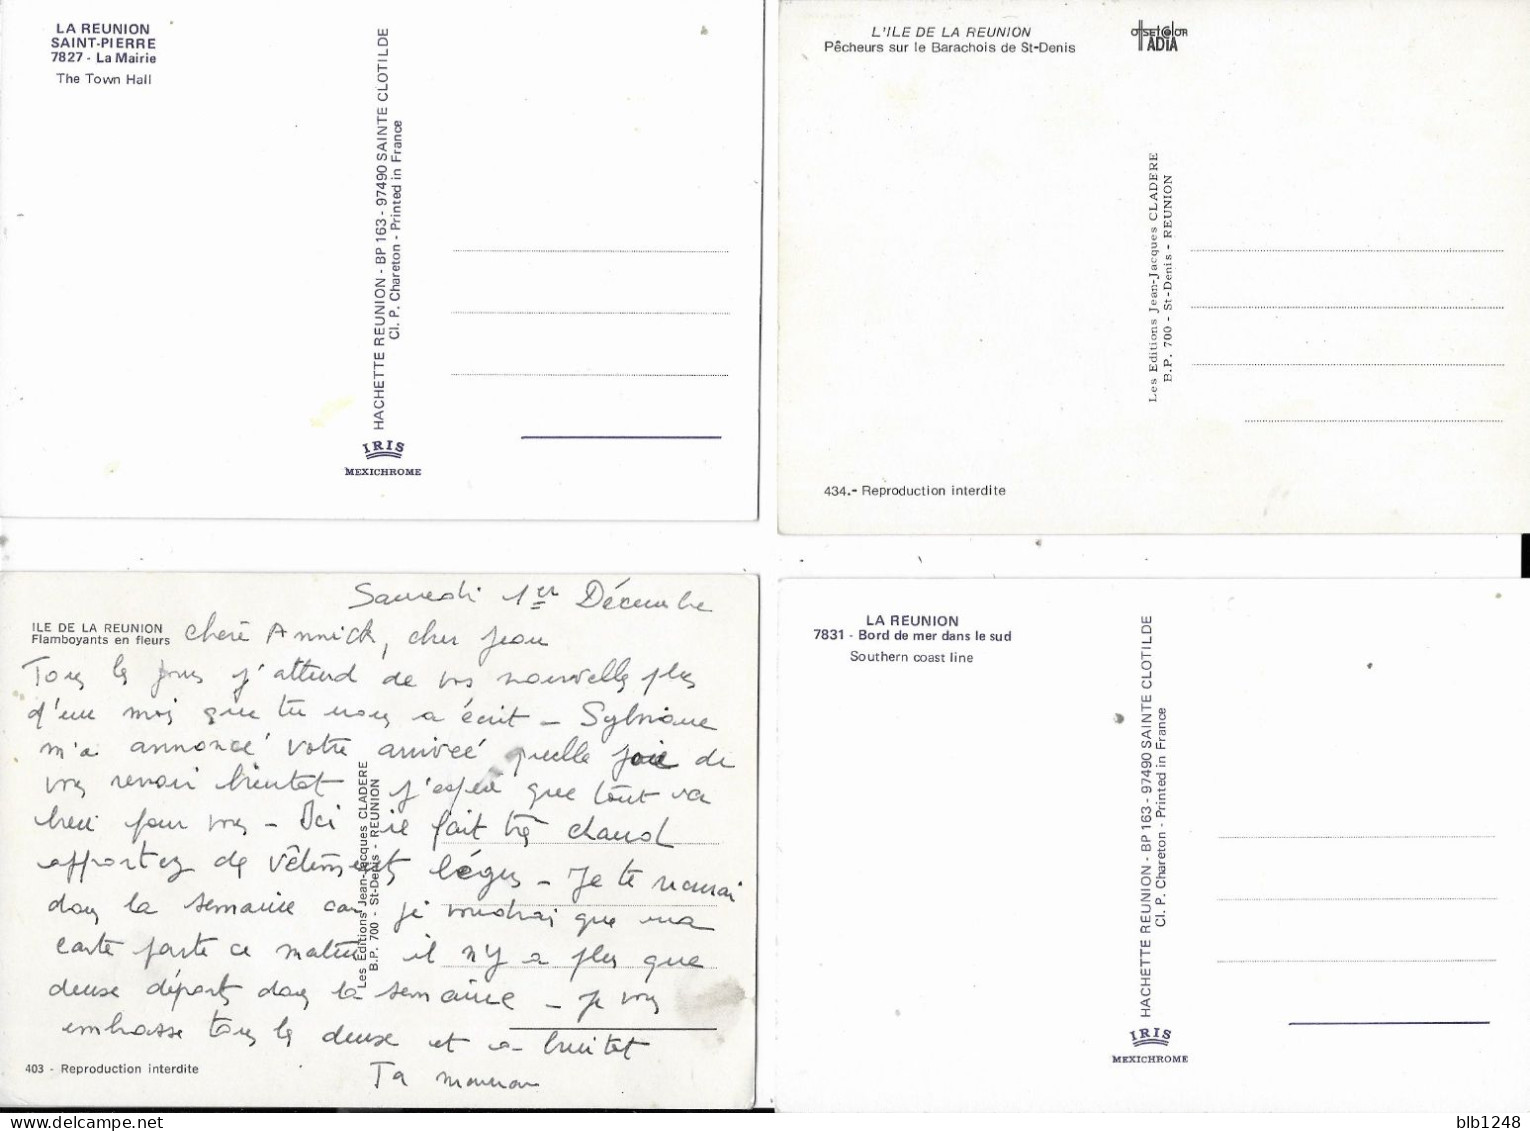 LA REUNION
SAINT-PIERRE
7827 - La Mairie
The Town Hall
HACHETTE REUNION - BP 163 - 97490 SAINTE CLOTILDE
Cl. P. Chareton - Printed in France
IRIS
MEXICHROME
L'ILE DE LA REUNION
Pêcheurs sur le Barachois de St-Denis
offset color
ADIA
Les Editions Jean-Jacques CLADERE
B.P. 700 - St-Denis - REUNION
434.- Reproduction interdite
ILE DE LA REUNION
Flamboyants en fleurs
Samedi 1er Décembre
chère Annick, cher Jean
Tous les jours j'attend de vos nouvelles plus
d'un mois que tu nous a écrit - Sylviane
m'a annoncé votre arrivée quelle joie de
vous revoir bientot j'espère que tout va
bien pour vous - Ici il fait très chaud
apportez des vêtements légers -
dans la semaine car je voudrai que ma
carte parte ce matin il n'y a plus que
deux départs dans la semaine - je vous
embrasse tous les deux et a bientot
Ta maman
Les Editions Jean-Jacques CLADERE
B.P. 700 - St-Denis - REUNION
403 - Reproduction interdite
LA REUNION
7831 - Bord de mer dans le sud
Southern coast line
HACHETTE REUNION - BP 163 - 97490 SAINTE CLOTILDE
Cl. P. Chareton - Printed in France
IRIS
MEXICHROME
blb1248